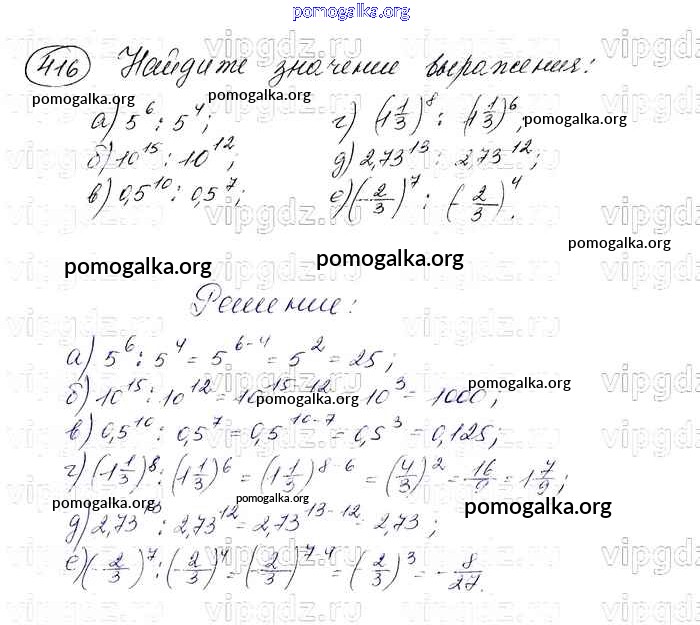 pomogalka.org
416 Найдите значение выражения:
pomogalka.org
а) 5^6 : 5^4; г) (1 1/3)^8 : (1 1/3)^6, pomogalka.org
б) 10^15 : 10^12; д) 2,73^13 : 2,73^12;
в) 0,5^10 : 0,5^7; е) (-2/3)^7 : (-2/3)^4.
pomogalka.org
pomogalka.org pomogalka.org
Решение:
а) 5^6 : 5^4 = 5^6-4 = 5^2 = 25;
б) 10^15 : 10^12 = 10^15-12 = 10^3 = 1000;
pomogalka.org pomogalka.org
в) 0,5^10 : 0,5^7 = 0,5^10-7 = 0,5^3 = 0,125;
г) (1 1/3)^8 : (1 1/3)^6 = (1 1/3)^8-6 = (4/3)^2 = 16/9 = 1 7/9;
pomogalka.org pomogalka.org pomogalka.org
д) 2,73^13 : 2,73^12 = 2,73^13-12 = 2,73;
е) (-2/3)^7 : (-2/3)^4 = (-2/3)^7-4 = (-2/3)^3 = -8/27.
vipgdz.ru